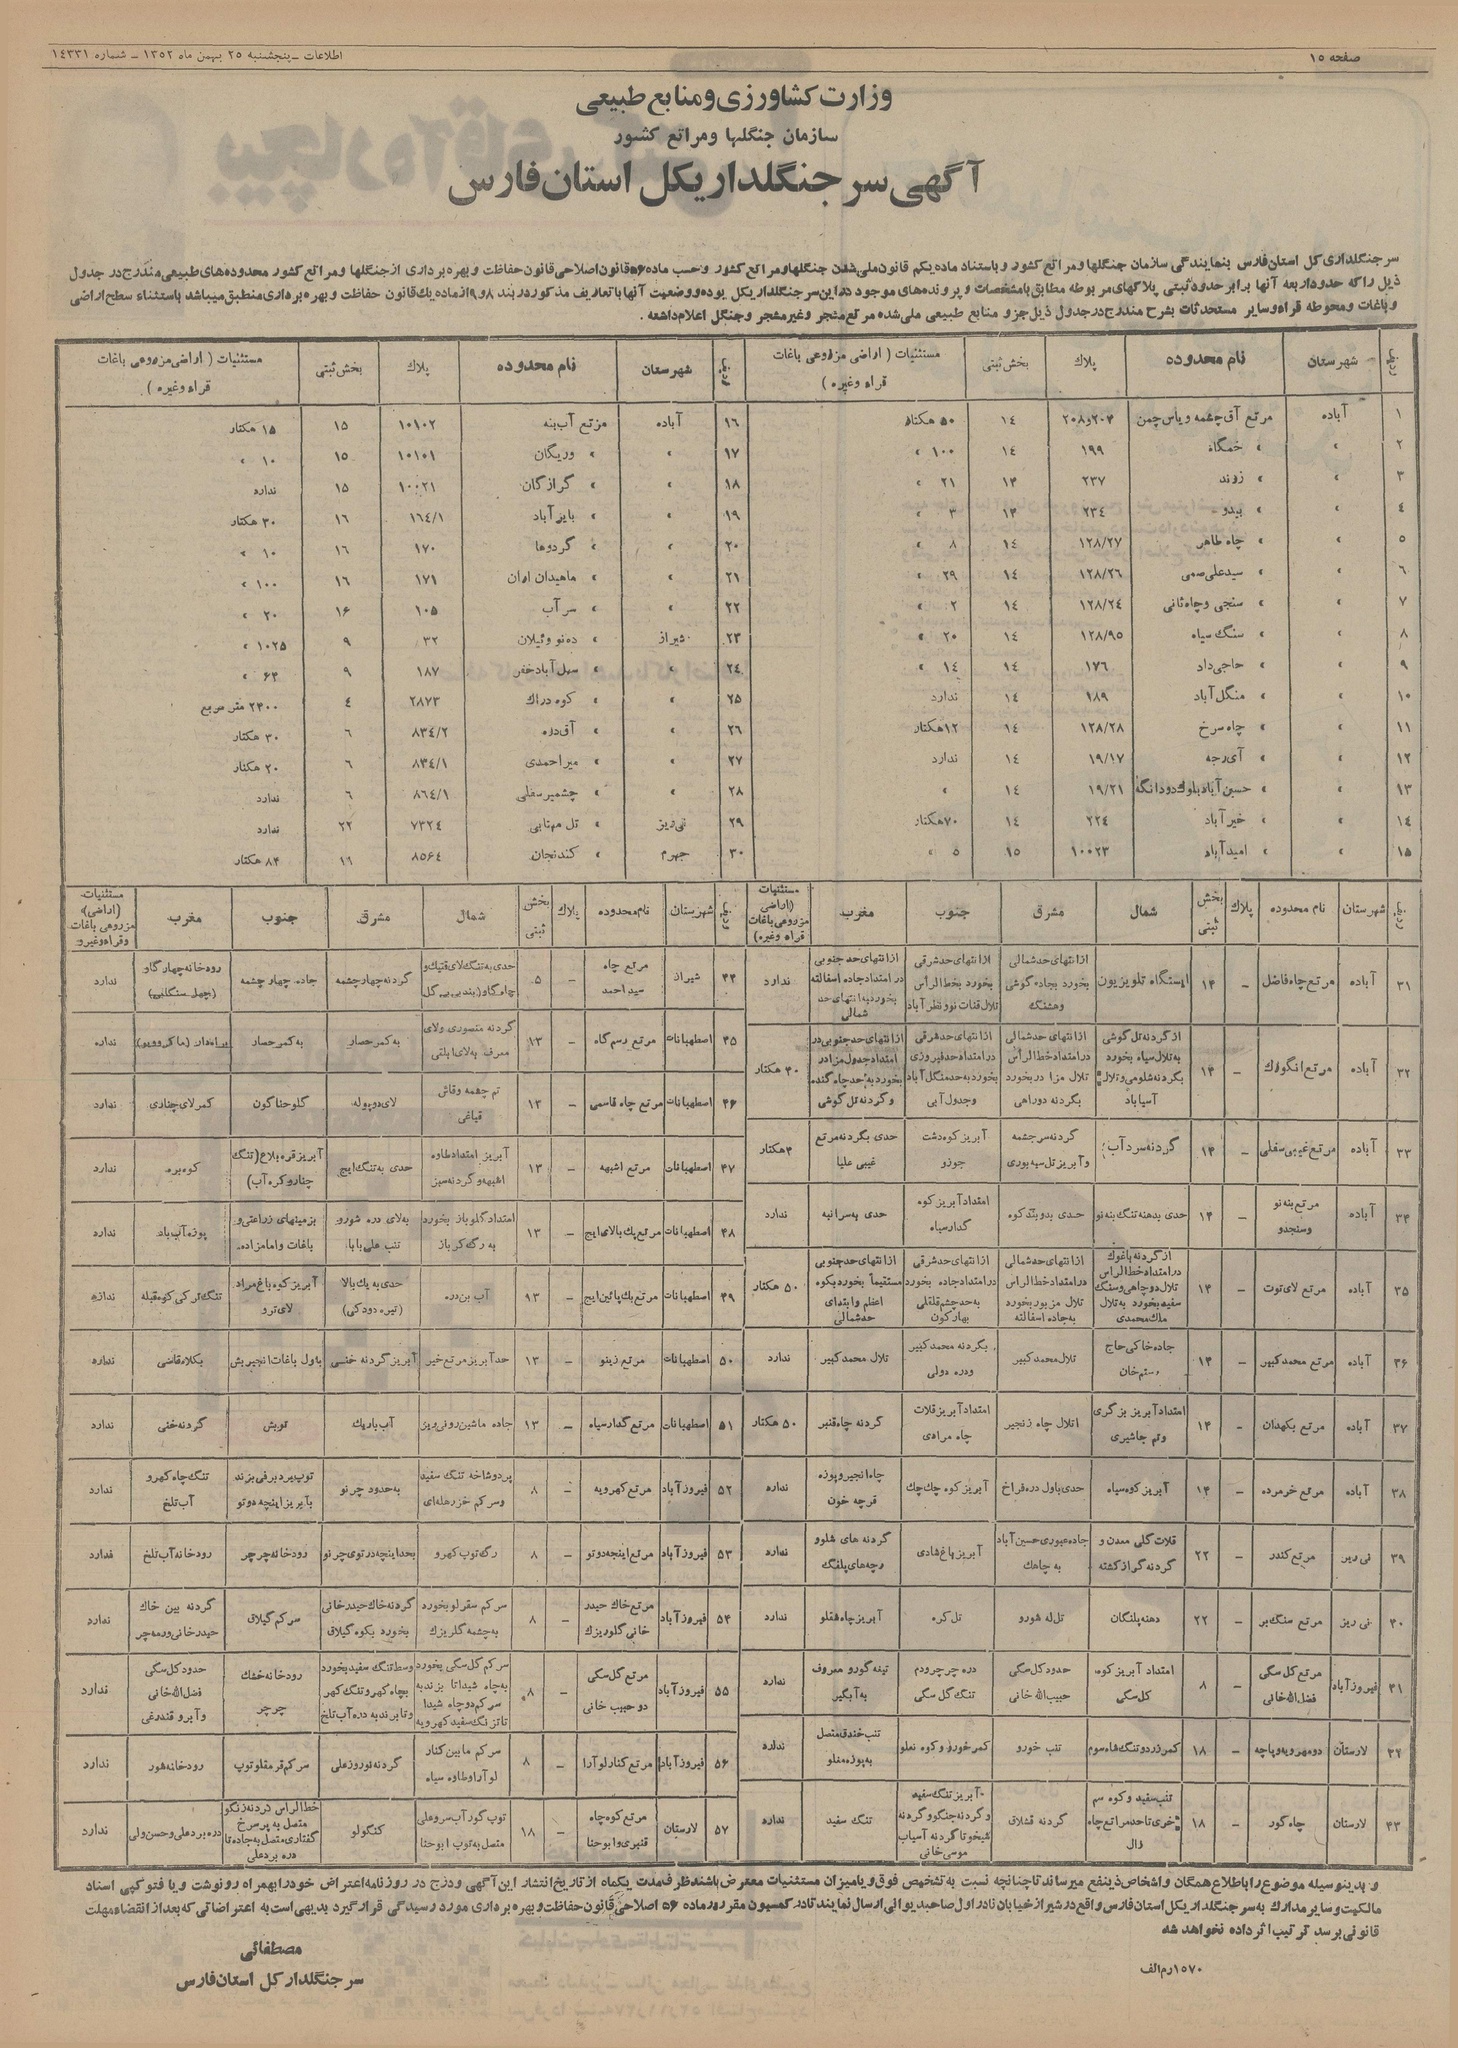 صفحه ۱۵
اطلاعات – پنجشنبه ۲۵ بهمن ماه ۱۳۵۲ – شماره ۱۴۳۳۱
وزارت کشاورزی و منابع طبیعی
سازمان جنگلها و مراتع کشور
آگهی سر جنگلداری کل استان فارس
سرجنگلداری کل استان فارس بنمایندگی سازمان جنگلها و مراتع کشور و باستناد ماده یکم قانون ملی شدن جنگلها و مراتع کشور و حسب ماده ۵۶ قانون اصلاحی قانون حفاظت و بهره برداری از جنگلها و مراتع کشور محدوده های طبیعی مندرج در جدول
ذیل را که حدود اربعه آنها برابر حدود ثبتی پلاکهای مربوطه مطابق با مشخصات و پرونده های موجود در این سرجنگلداریکل بوده و وضعیت آنها با تعاریف مذکور در بند ۸ و ۹ از ماده یک قانون حفاظت و بهره برداری منطبق میباشد باستثناء سطح اراضی
و باغات و محوطه قراء و سایر مستحدثات بشرح مندرج در جدول ذیل جزو منابع طبیعی ملی شده مرتع مشجر و غیر مشجر و جنگل اعلام داشته.
ردیف شهرستان نام محدوده پلاک بخش ثبتی مستثنیات ( اراضی مزروعی باغات قراء وغیره )
۱ آباده مرتع آق چشمه و یاس چمن ۱۴ ۵۰ هکتار
۲ » » خمگاه ۱۹۹ ۱۴ ۱۰۰ »
۳ » » زوند ۲۳۷ ۱۴ ۲۱ »
۴ » » بیدو ۲۳۴ ۱۴ ۳ »
۵ » » چاه طاهر ۱۲۸/۲۷ ۱۴ ۸ »
۶ » » سیدعلی ۱۲۸/۲۶ ۱۴ ۲۹ »
۷ » » سنجی و چاه ثانی ۱۲۸/۲۴ ۱۴ ۲ »
۸ » » سنگ سیاه ۱۲۸/۹۵ ۱۴ ۲۰ »
۹ » » حاجی داد ۱۷۶ ۱۴ ۱۴ »
۱۰ » » منگل آباد ۱۸۹ ۱۴ ندارد
۱۱ » » چاه سرخ ۱۲۸/۲۸ ۱۴ ۱۲ هکتار
۱۲ » » آی رجه ۱۹/۱۷ ۱۴ ندارد
۱۳ » » حسین آباد بلوک دودانگه ۱۹/۲۱ ۱۴ »
۱۴ » » خیر آباد ۲۲۴ ۱۴ ۷۰ هکتار
۱۵ » » امید آباد ۱۰۰۲۳ ۱۵ ۵ »
ردیف شهرستان نام محدوده پلاک بخش ثبتی مستثنیات ( اراضی مزروعی باغات قراء وغیره )
۱۶ آباده مرتع آب بنه ۱۰۱۰۲ ۱۵ ۱۵ هکتار
۱۷ » » وریگان ۱۰۱۰۱ ۱۵ ۱۰ »
۱۸ » » گرازگان ۱۰۰۲۱ ۱۵ ندارد
۱۹ » » بایز آباد ۱۶۴/۱ ۱۶ ۳۰ هکتار
۲۰ » » گردوها ۱۷۰ ۱۶ ۱۰ »
۲۱ » » ماهیدان ۱۷۱ ۱۶ ۱۰۰ »
۲۲ » » سر آب ۱۰۵ ۱۶ ۲۰ »
۲۳ شیراز » ده نو و ئیلان ۳۲ ۹ ۱۰۲۵ »
۲۴ » » سهل آباد خفر ۱۸۷ ۹ ۶۴ »
۲۵ » » کوه دراک ۲۸۷۳ ۴ ۲۴۰۰ متر مربع
۲۶ » » آق دره ۸۳۴/۲ ۶ ۳۰ هکتار
۲۷ » » میر احمدی ۸۳۴/۱ ۶ ۲۰ هکتار
۲۸ » » سفلی ۸۶۴/۱ ۶ ندارد
۲۹ نی ریز » تل مهتابی ۷۳۲۴ ۲۲ ندارد
۳۰ جهرم » کندنجان ۸۵۶۴ ۱۱ ۸۴ هکتار
ردیف شهرستان نام محدوده پلاک بخش ثبتی شمال مشرق جنوب مغرب مستثنیات (اراضی مزروعی باغات قراء وغیره)
۳۱ آباده مرتع چاه فاضل – ۱۴ ایستگاه تلویزیون از انتهای حد شمالی بخورد بجاده گوشی و هشتگ از انتهای حد شرقی بخورد بخط الرأس تلال قنات نو و نظر آباد از انتهای حد جنوبی در امتداد جاده اسفالته بخورد به انتهای حد شمالی ندارد
۳۲ آباده مرتع انگورک – ۱۴ از گردنه تل گوشی به تلال سیاه بخورد بگردنه شلومی و تلال آسیاباد از انتهای حد شمالی در امتداد خط الرأس تلال مزا در بخورد بگردنه دوراهی از انتهای حد شرقی در امتداد حد فیروزی بخورد به حد منگل آباد و جدول آبی از انتهای حد جنوبی در امتداد جدول مزا در بخورد به حد چاه گنده و گردنه تل گوشی ۴۰ هکتار
۳۳ آباده مرتع غیبی سفلی – ۱۴ گردنه سرد آب گردنه سرچشمه و آبریز تل سه بوری آبریز کوه دشت جوزو حدی بگردنه مرتع غیبی علیا ۴ هکتار
۳۴ آباده مرتع بنه نو و سنجدو – ۱۴ حدی بدهنه تنگ بنه نو حدی بدوبند کوه امتداد آبریز کوه گدار سیاه حدی به سرانیه ندارد
۳۵ آباده مرتع لای توت – ۱۴ از گردنه باغوک در امتداد خط الراس تلال دو چاهی و سنگ سفید بخورد به تلال ملک محمدی از انتهای حد شمالی در امتداد خط الراس تلال مزبور بخورد به جاده اسفالته از انتهای حد شرقی در امتداد جاده بخورد به حد چشم قلقلی بهار کون از انتهای حد جنوبی مستقیماً بخورد بکوه اعظم و ابتدای حد شمالی ۵۰ هکتار
۳۶ آباده مرتع محمد کبیر – ۱۴ جاده خاکی حاج رستم خان تلال محمد کبیر بگردنه محمد کبیر و دره دولی تلال محمد کبیر ندارد
۳۷ آباده مرتع بکهدان – ۱۴ امتداد آبریز بزگری و تم جاشیری اتلال چاه زنجیر امتداد آبریز قلات چاه مرادی گردنه چاه قنبر ۵۰ هکتار
۳۸ آباده مرتع خرمرده – ۱۴ آبریز کوه سیاه حدی باول دره فراخ آبریز کوه چک چک چاه انجیر و پوزه قرچه خون ندارد
۳۹ نی ریز مرتع کندر – ۲۲ قلات گلی معدن و گردنه گراز کشته جاده عبوری حسین آباد به چاهک آبریز باغ شادی گردنه های شلو و رچه های پلنگ ندارد
۴۰ نی ریز مرتع سنگ بر – ۲۲ دهنه پلنگان تل له شورو تل کره آبریز چاه شقلو ندارد
۴۱ فیروز آباد مرتع کل سکی فضل الله خانی – ۸ امتداد آبریز کوه کل سکی حدود کل سکی حبیب الله خانی دره چرچرودم تنگ گل سکی تیغه گورو معروف به آبگیر ندارد
۴۲ لارستان دو مهرویه و پاچه – ۱۸ کمر زرد و تنگ شاه سوم تنب خورو کمر خورو و کوه نعلو تنب خندق متصل به پوزه مغلو ندارد
۴۳ لارستان چاه گور – ۱۸ تنب سفید و کوه سم تا حد مراتع چاه زال گردنه قشلاق آبریز تنگ سفید و گردنه جنگو و گردنه شیخو تا گردنه آسیاب موسی خانی تنگ سفید ندارد
ردیف شهرستان نام محدوده پلاک بخش ثبتی شمال مشرق جنوب مغرب مستثنیات (اراضی) مزروعی باغات و قراء و غیره
۴۴ شیراز مرتع چاه سید احمد – ۵ حدی به تنگ لای قنیک و چاه گاو گردنه چهار چشمه جاده چهار چشمه رودخانه چهار گاو ندارد
۴۵ اصطهبانات مرتع رسم گاه – ۱۳ گردنه منصوری ولای معرف به لای ابلتی به کمر حصار به کمر حصار ندارد
۴۶ اصطهبانات مرتع چاه قاسمی – ۱۳ تم چشمه وقاش قباغی لای دو پوله گلو حناگون کمر لای چناری ندارد
۴۷ اصطهبانات مرتع اشبهه – ۱۳ آبریز امتداد طاوه اشبهه و گردنه سبز حدی به تنگ ایج آبریز قره بلاغ (تنگ چنار و کره آب) کوه بره ندارد
۴۸ اصطهبانات مرتع یک بالای ایج – ۱۳ امتداد گلو باز بخورد به رگ کرباز به لای دره شورو تنب علی بابا بزمینهای زراعتی و باغات و امامزاده پوزه آب باد ندارد
۴۹ اصطهبانات مرتع یک پائین ایج – ۱۳ آب بن دره حدی به یک بالا (تیره دودکی) آبریز کوه باغ مراد لای ترو تنگ ترکی کوه قبله ندارد
۵۰ اصطهبانات مرتع زینو – ۱۳ حد آبریز مرتع خیر آبریز گردنه خنی باول باغات انجیر بش بکلاه قاضی ندارد
۵۱ اصطهبانات مرتع گدار سیاه – ۱۳ جاده ماشین رو نی ریز آب باریک تویش گردنه خنی ندارد
۵۲ فیروز آباد مرتع کهرویه – ۸ پردوشاخه تنگ سفید و سرکم خزر هله ای به حدود چرنو توپ برد برفی بزند بآبریز اینچه دوتو تنگ چاه کهرو آب تلخ ندارد
۵۳ فیروز آباد مرتع اینجه دوتو – ۸ رگ توپ کهرو بحد اینچه درتوی چرنو رودخانه چرچر رودخانه آب تلخ ندارد
۵۴ فیروز آباد مرتع خاک حیدر خانی گلوریزک – ۸ سرکم سقرلو بخورد به چشمه گلریزک گردنه خاک حیدرخانی بخورد بکوه گیلاق سرکم گیلاق گردنه بین خاک حیدرخانی ورمه چر ندارد
۵۵ فیروز آباد مرتع گل سکی دو حبیب خانی – ۸ سرکم گل سکی بخورد به چاه شیدا تا بزند به سرکم دو چاه شیدا تا تنگ سفید کهرویه وسط تنگ سفید بخورد بچاه کهر و تنگ کهر و تا برند به دره آب تلخ رودخانه خشک چرچر حدود کل سکی فضل الله خانی و آبرو قندرغی ندارد
۵۶ فیروز آباد مرتع کنار لوآرا – ۸ سرکم مابین کنار لوآرا و طاوه سیاه گردنه نوروز علی سرکم قرمقلوتوپ رودخانه شور ندارد
۵۷ لارستان مرتع کوه چاه قنبری و ابوحنا – ۱۸ توپ گور آب سرو علی متصل به توپ ابوحنا کنگولو خط الراس گردنه زنگو متصل به پر سرخ گفتاری متصل به جاده تا دره بردعلی دره بردعلی و حسن ولی ندارد
و بدینوسیله موضوع را باطلاع همگان و اشخاص ذینفع میرساند تا چنانچه نسبت به تشخیص فوق و یا میزان مستثنیات معترض باشند ظرف مدت یکماه از تاریخ انتشار این آگهی و درج در روزنامه اعتراض خود را بهمراه رونوشت و یا فتوکپی اسناد
مالکیت و سایر مدارک به سرجنگلداریکل استان فارس واقع در شیراز خیابان نادر اول صاحبدیوانی ارسال نمایند تا در کمسیون مقرر در ماده ۵۶ اصلاحی قانون حفاظت و بهره برداری مورد رسیدگی قرار گیرد بدیهی است به اعتراضاتی که بعد از انقضاء مهلت
قانونی برسد ترتیب اثر داده نخواهد شد
مصطفائی
سر جنگلدار کل استان فارس
۱۵۷۰ رم الف